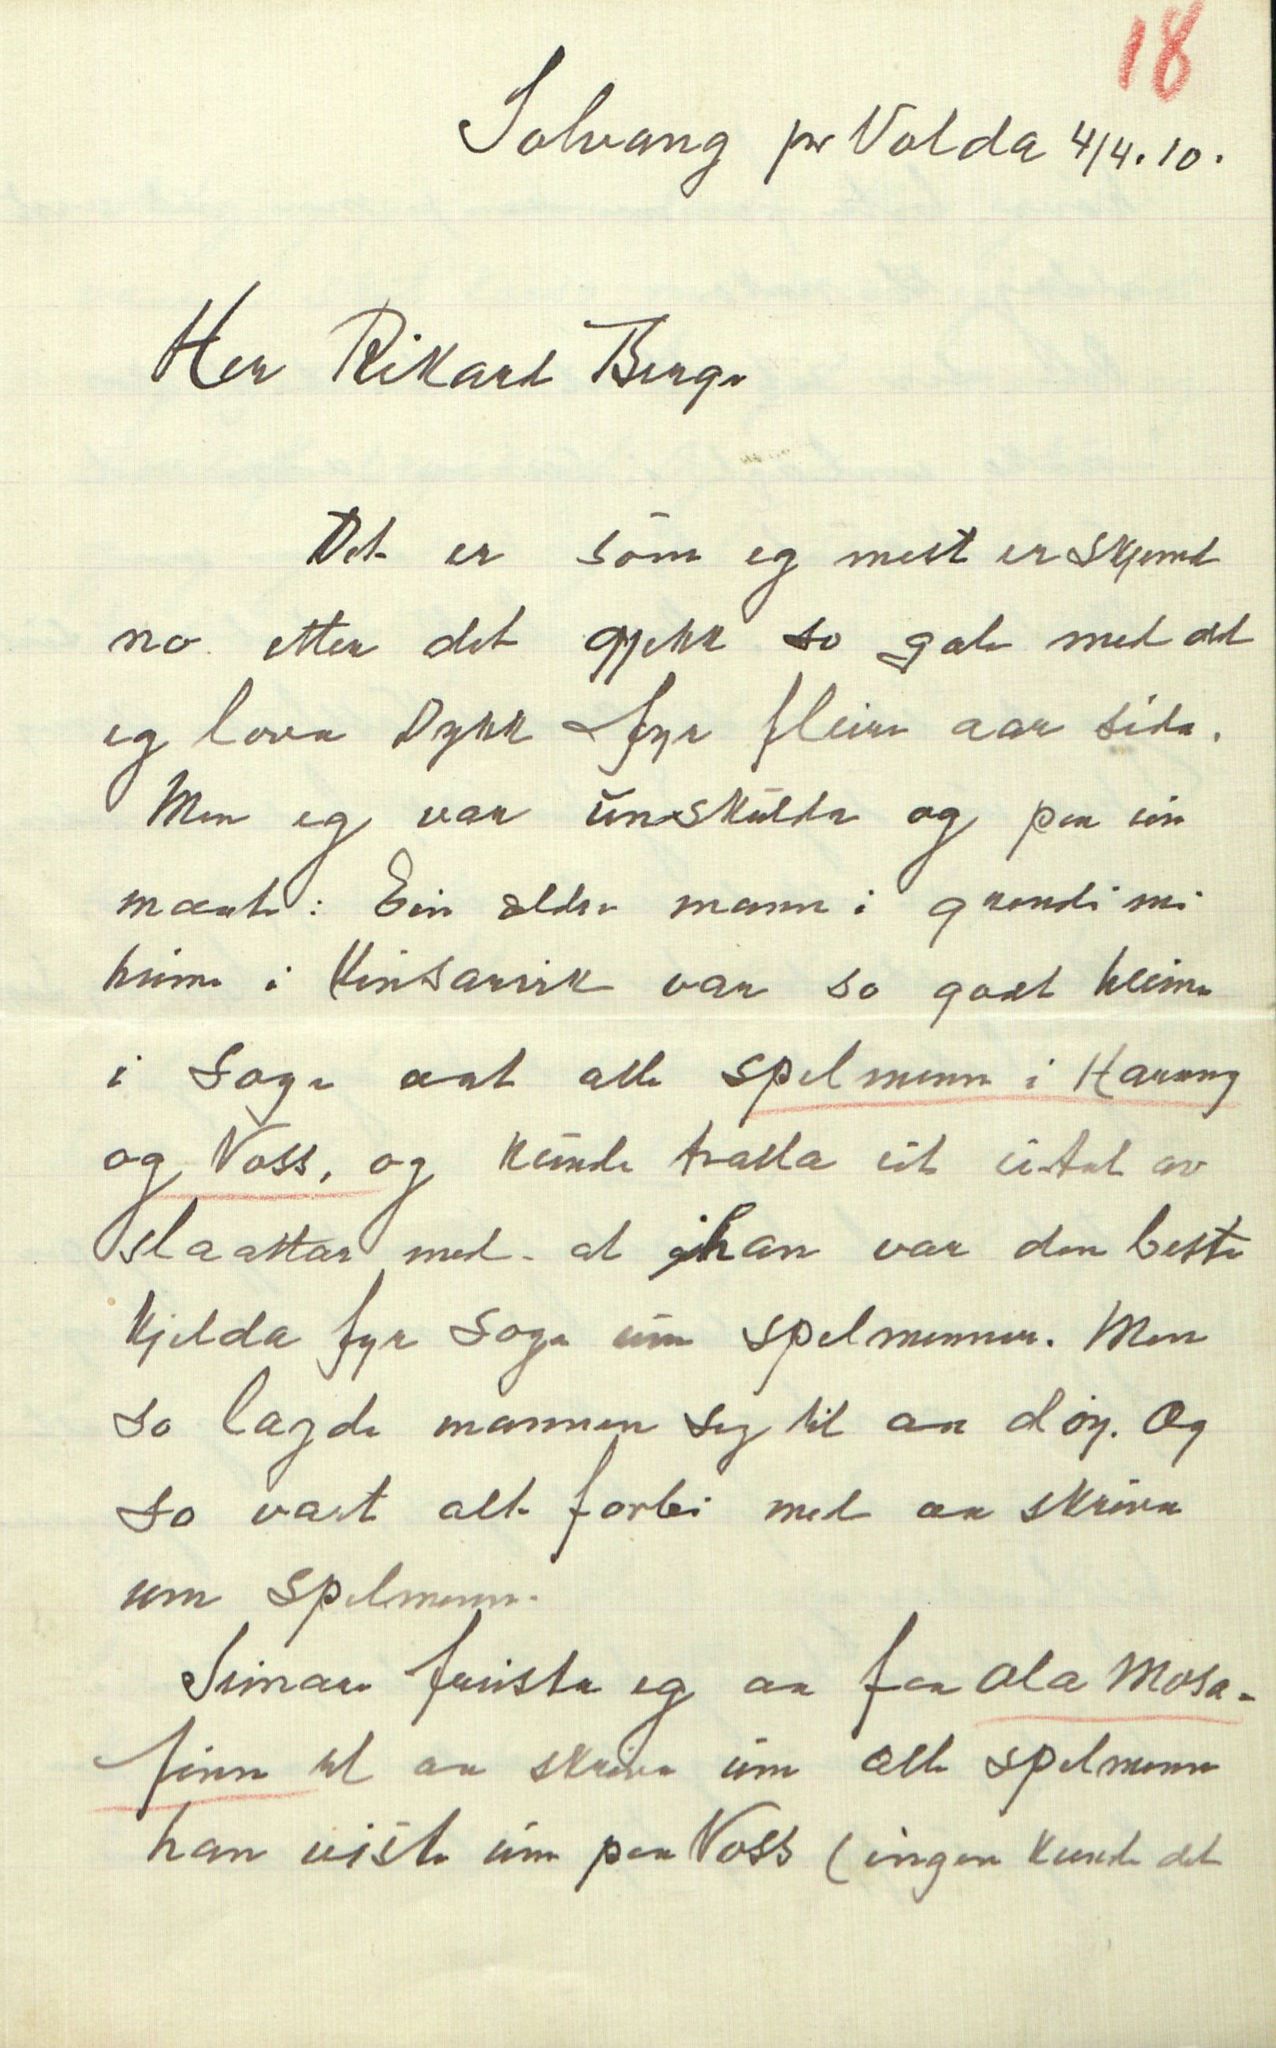 18
Solvang pr Volda 4/4.10.
Her Rikard Berge
Det er som eg mest er skjemd
no etter det gjekk so gale med det
eg lova Dykk fyr fleire aar sida.
Men eg var unskulda og paa ein
maate: Ein eldre mann i grendi mi
heime i Kinsarvik var so godt heime
i soga aat alle spelmenn i Harang
og Voss, og kunde tralla eit utal av
slaattar med. at han var den beste
kjelda fyr soga um spelmenner. Men
so lagde mannen seg til aa døy. Og
so vart alt forbi med aa skriva
um spelmenn.
Seinare freista eg aa faa Ola Mosa-
finn til aa skriva um alle spelmenn
han viste um paa Voss (ingen kunde det